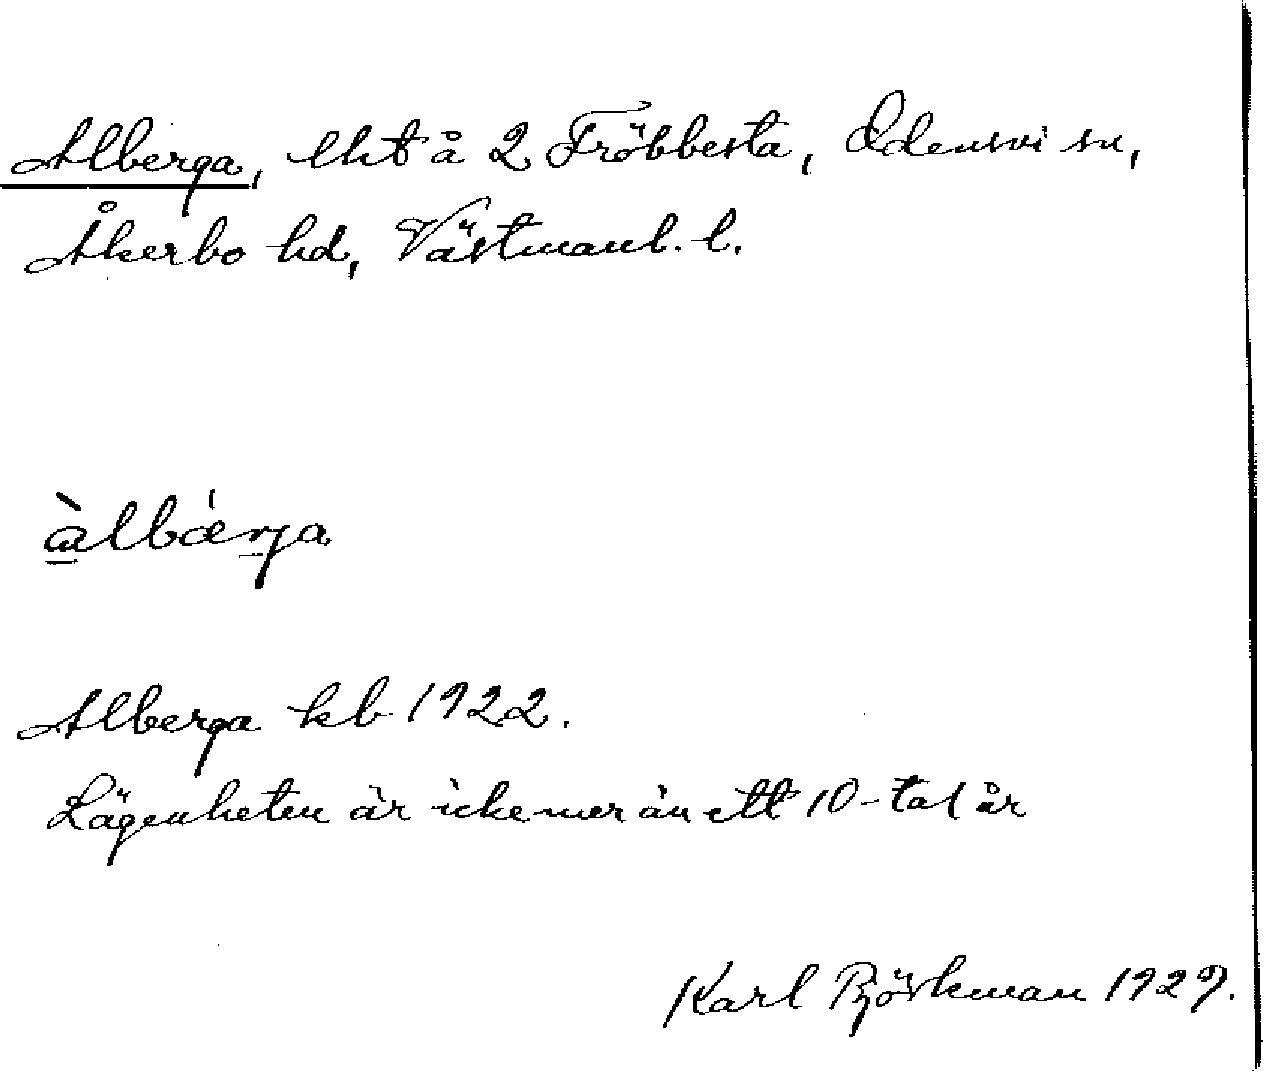 Alberga, lht å 2 Fröbbesta, Odensvi sn,
Åkerbo hd, Västmanl. l.
àlbǽrja
Alberga kb 1922.
Lägenheten är icke mer än ett 10-tal år
Karl Björkman 1929.